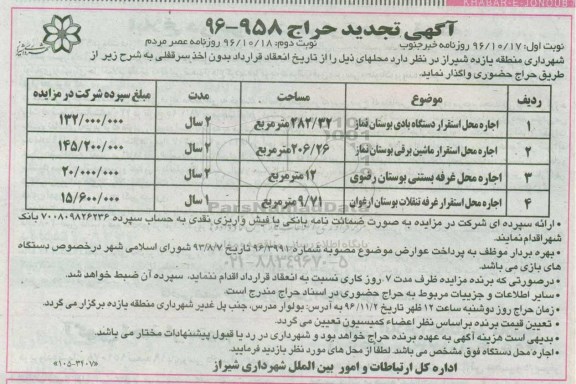 KHABAR-E-JONOUB
آگهی تجدید حراج ۹۵۸-۹۶
نوبت اول: ۹۶/۱۰/۱۷ روزنامه خبرجنوب
نوبت دوم: ۹۶/۱۰/۱۸ روزنامه عصر مردم
شهرداری منطقه یازده شیراز در نظر دارد محلهای ذیل را از تاریخ انعقاد قرارداد بدون اخذ سرقفلی به شرح زیر از
طریق حراج حضوری واگذار نماید.
ردیف موضوع مساحت مدت مبلغ سپرده شرکت در مزایده
۱ اجاره محل استقرار دستگاه بادی بوستان نماز ۲۸۲/۳۲ مترمربع ۲ سال ۱۳۲/۰۰۰/۰۰۰
۲ اجاره محل استقرار ماشین برقی بوستان نماز ۲۰۶/۲۶ مترمربع ۲ سال ۱۴۵/۲۰۰/۰۰۰
۳ اجاره محل غرفه بستنی بوستان رضوی ۱۲ مترمربع ۲ سال ۲۰/۰۰۰/۰۰۰
۴ اجاره محل استقرار غرفه تنقلات بوستان ارغوان ۹/۷۱ مترمربع ۱ سال ۱۵/۶۰۰/۰۰۰
• ارائه سپرده ای شرکت در مزایده به صورت ضمانت نامه بانکی یا فیش واریزی نقدی به حساب سپرده ۷۰۰۸۰۹۸۲۶۲۳۶ بانک
شهر اقدام نمایند.
• بهره بردار موظف به پرداخت عوارض موضوع مصوبه شماره ۹۶/۳۹۹۱۵ تاریخ ۹۳/۸/۷ شورای اسلامی شهر درخصوص دستگاه
های بازی می باشد.
• درصورتی که برنده مزایده ظرف مدت ۷ روز کاری نسبت به انعقاد قرارداد اقدام ننماید، سپرده آن ضبط خواهد شد.
• سایر اطلاعات و جزییات مربوط به حراج حضوری در اسناد حراج مندرج است.
• زمان حراج روز دوشنبه ساعت ۱۲ ظهر تاریخ ۹۶/۱۱/۲ به آدرس: بولوار مدرس، جنب پل غدیر شهرداری منطقه یازده برگزار می گردد.
• تعیین قیمت برنده براساس نظر اعضاء کمیسیون تعیین می گردد.
• بدیهی است هزینه آگهی به عهده برنده حراج خواهد بود و شهرداری در رد یا قبول پیشنهادات مختار می باشد.
• اجاره محل دستگاه فوق مشخص می باشد لطفا از محل های مورد نظر بازدید فرمایید.
اداره کل ارتباطات و امور بین الملل شهرداری شیراز
«۱۰۵-۳۲۰۷»
۰۲۱-۸۸۳۴۹۶۷۰-۵